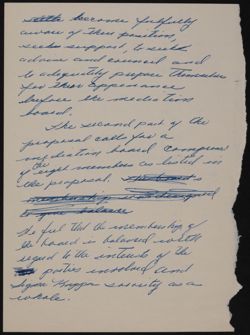 become fulfully
aware of their position,
seeks support, to seek
advice and council and
to adequitely prepare themselves
for their apperance
before the mediation
board.
The second part of the
proposal calls for a
mediation board composed
of the eight members as listed in
the proposal.
We feel that the membership of
the board is balanced with
regard to the interests of the
parties involved and
Sigma Kappa sorority as a
whole.